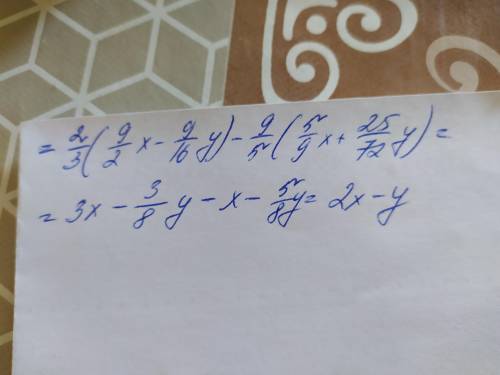 = 2/3(9/2x - 9/16y) - 9/5(5/9x + 25/72y) =
= 3x - 3/8y - x - 5/8y = 2x - y